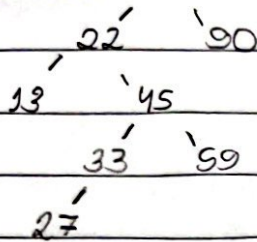 22 90
13 45
33 59
27